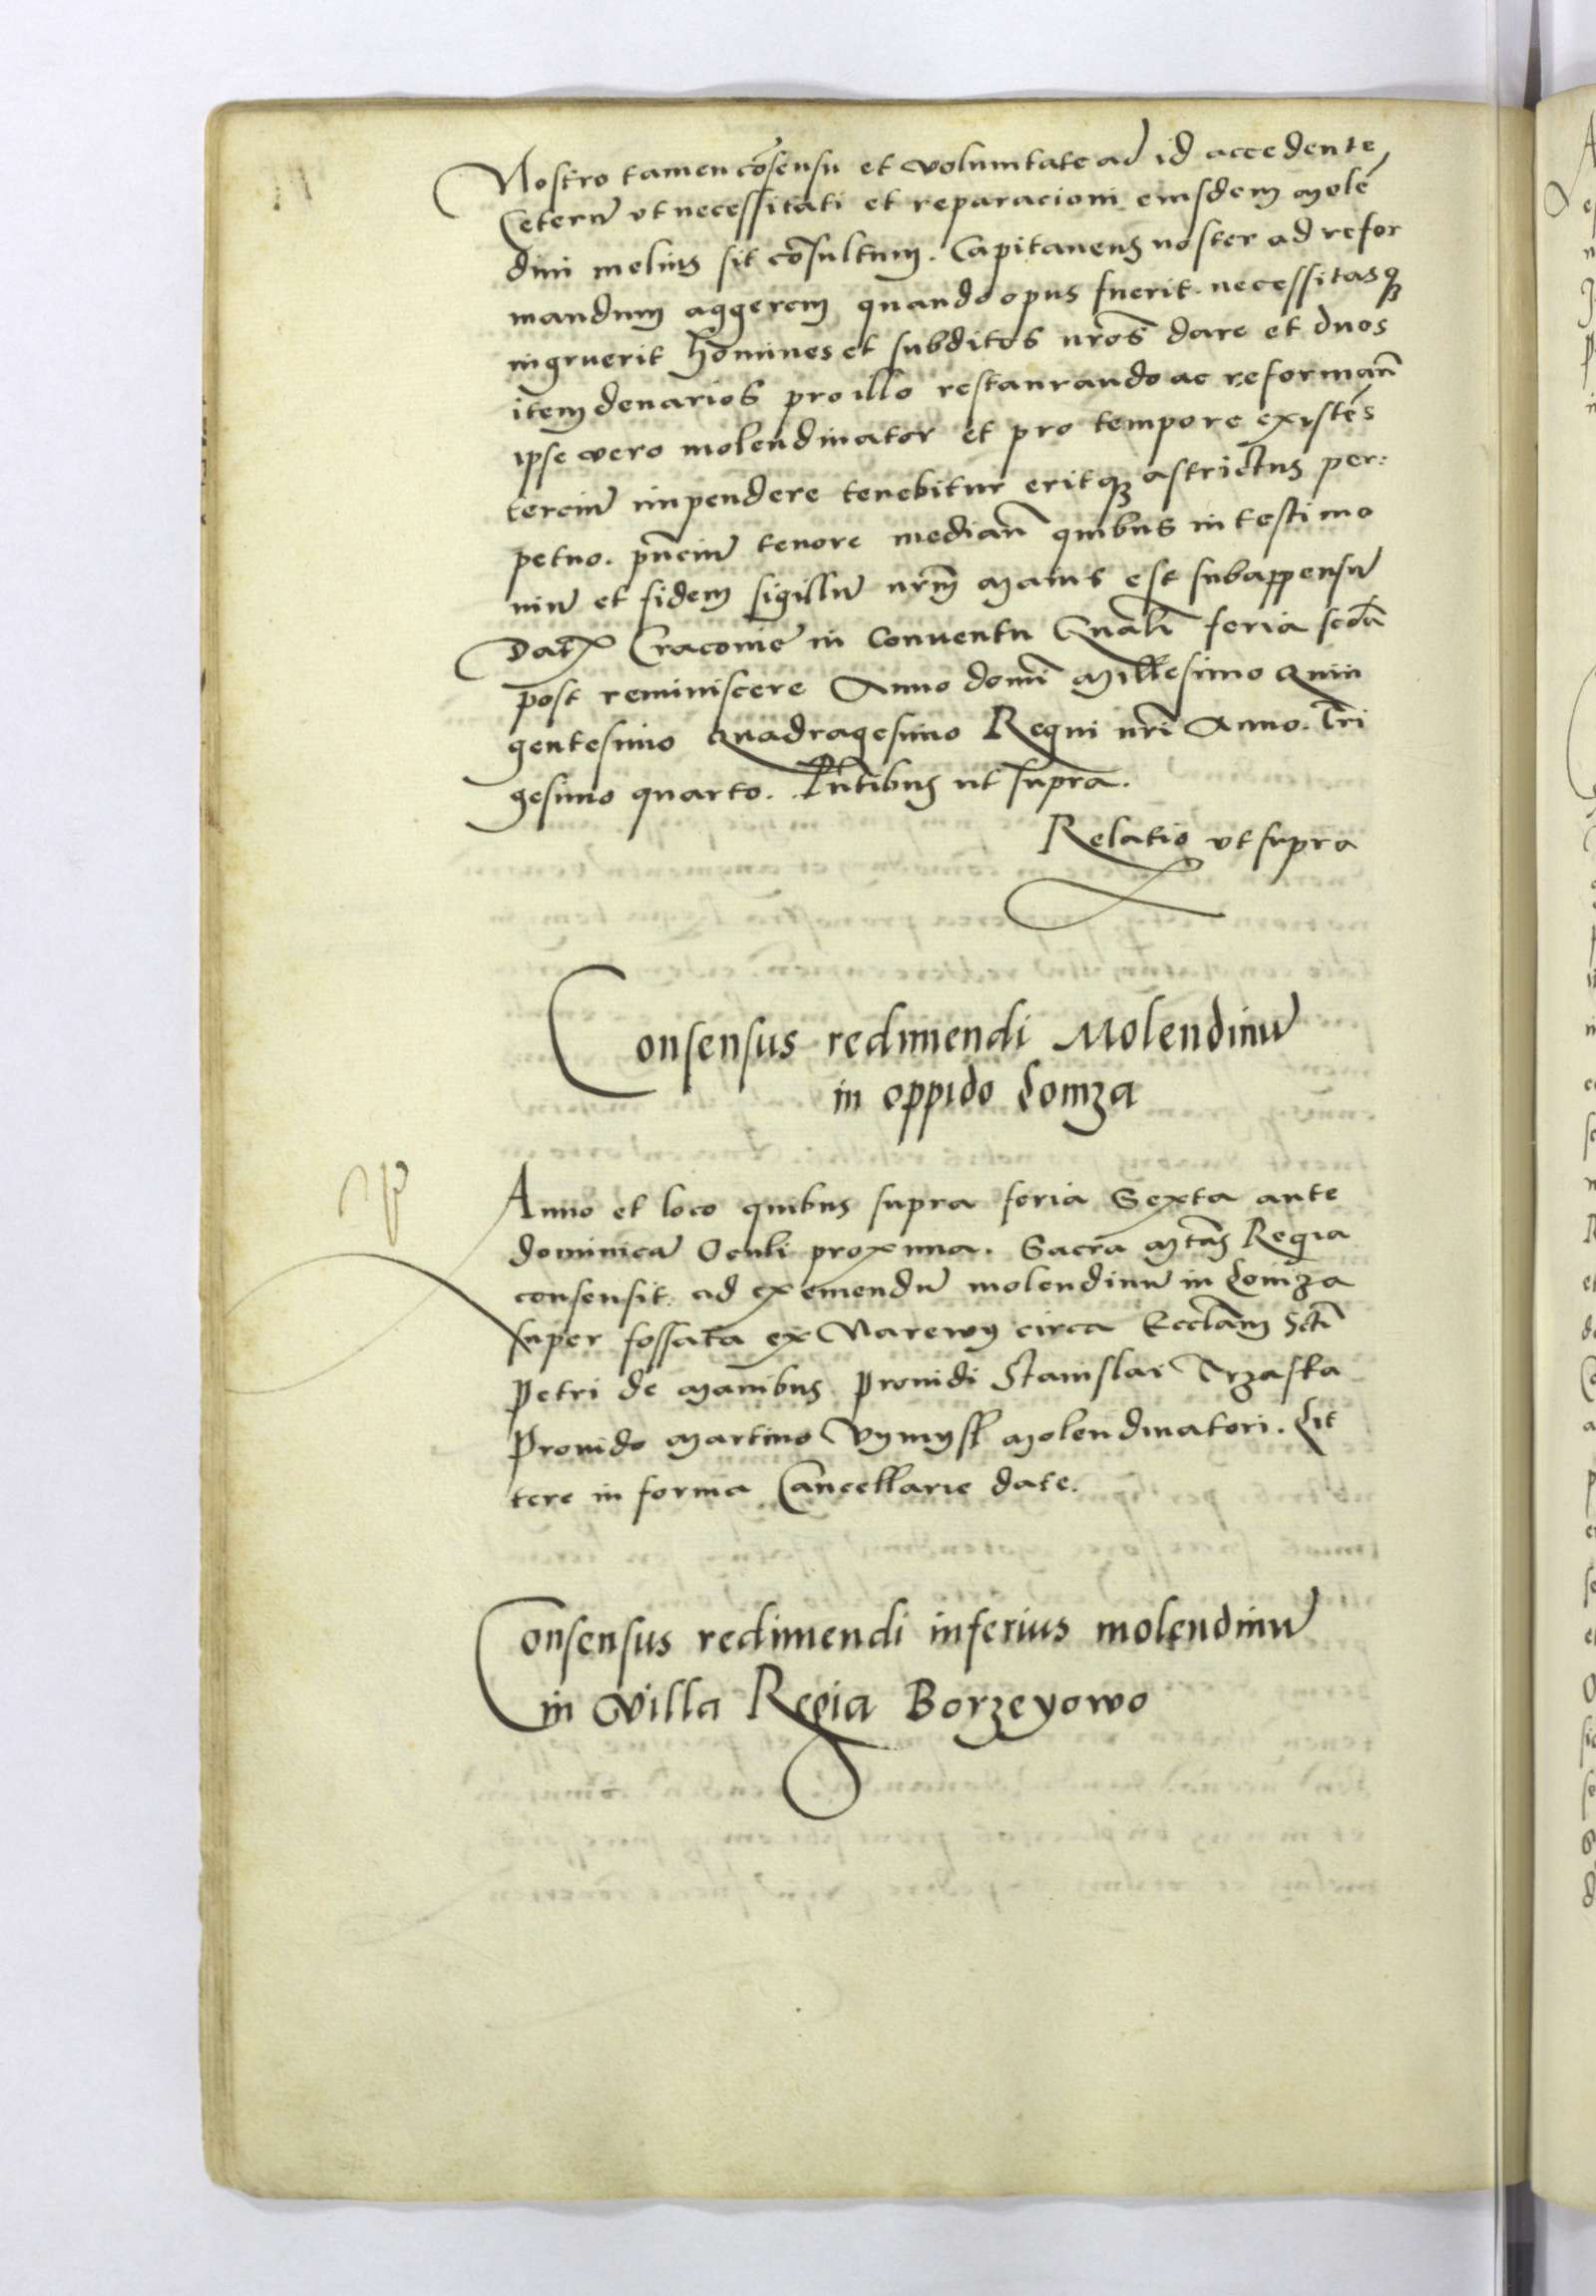 Nostro tamen cõsensu et voluntate ad id accedente,
Ceterũ vt necessitati et reparacioni eiusdem molẽ
dini melius sit cõsultum. Capitaneus noster ad refor
mandum aggerem quando opus fuerit necessitasqꝫ
ingruerit homines et subditos nr̃os dare et duos
item denarios pro illo restaurando ac reformañ
ipse vero molendinator et pro tempore existẽs
terciũ impendere tenebitur eritqꝫ astrictus per:
petuo. pñciũ tenore mediañ quibus in testimo
niũ et fidem sigillũ nr̃m maius est subappensũ
Datꝭ Cracouie in Conuentu Gñali feria secđa
post reminiscere Anno domĩ Millesimo Quin
gentesimo Quadragesimo Regni nr̃i Anno. Tri
gesimo quarto. Pñtibus ut supra.
Relatio vt supra
Consensus redimendi Molendinũ
in oppido Lomza
Anno et loco quibus supra feria Sexta ante
dominicã Oculi proxima. Sacra Mtãs Regia
consensit ad exemendũ molendinũ in Lomza
super fossata ex Narewy circa Eccl̃iam Sctĩ
Petri de manibus Prouidi Stanislai Trzaska
Prouido Martino Vymysl molendinatori. Lit
tere in forma Cancellarie date.
Consensus redimendi inferius molendinũ
in Villa Regia Borzeyowo